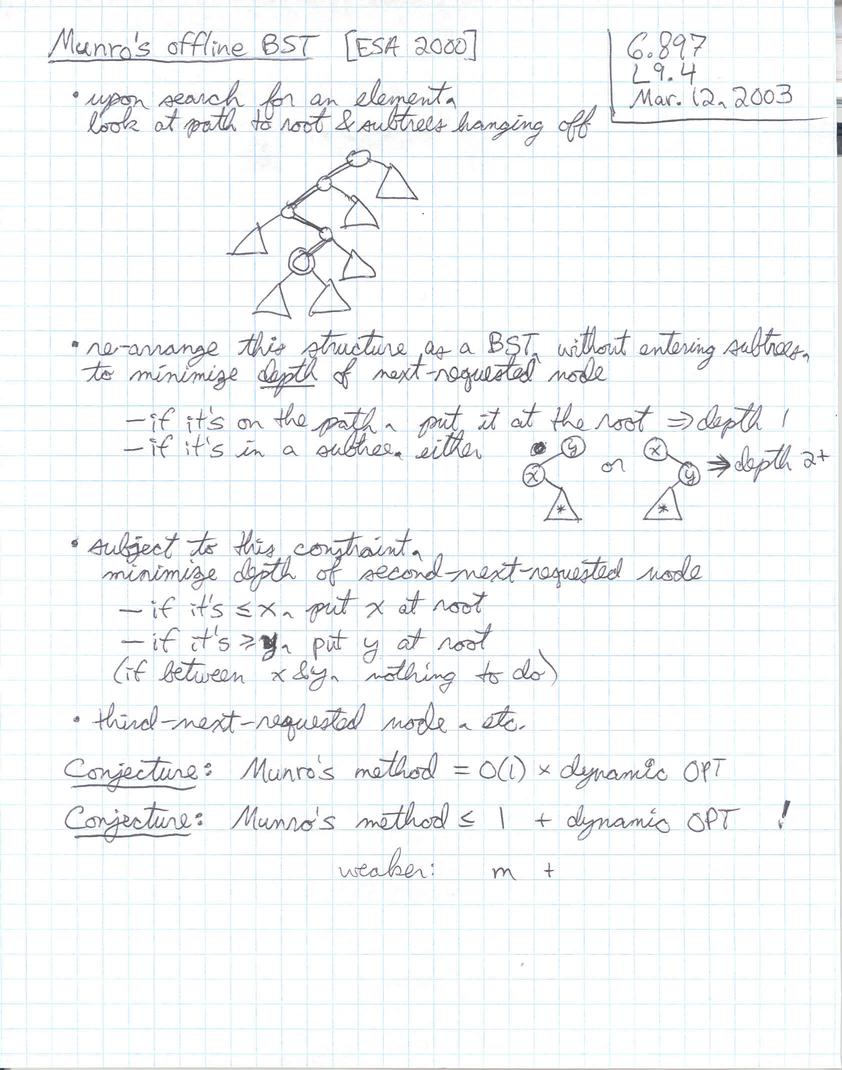 Munro's offline BST [ESA 2000]
6.897
L9.4
Mar. 12, 2003
• upon search for an element,
look at path to root & subtrees hanging off
• re-arrange this structure, as a BST, without entering subtrees,
to minimize depth of next-requested node
– if it's on the path, put it at the root ⇒ depth 1
– if it's in a subtree, either
y x * or x y * ⇒ depth 2+
• subject to this constraint,
minimize depth of second-next-requested node
– if it's ≤ x, put x at root
– if it's ≥ y, put y at root
(if between x & y, nothing to do)
• third-next-requested node, etc.
Conjecture: Munro's method = O(1) × dynamic OPT
Conjecture: Munro's method ≤ 1 + dynamic OPT !
weaker: m +